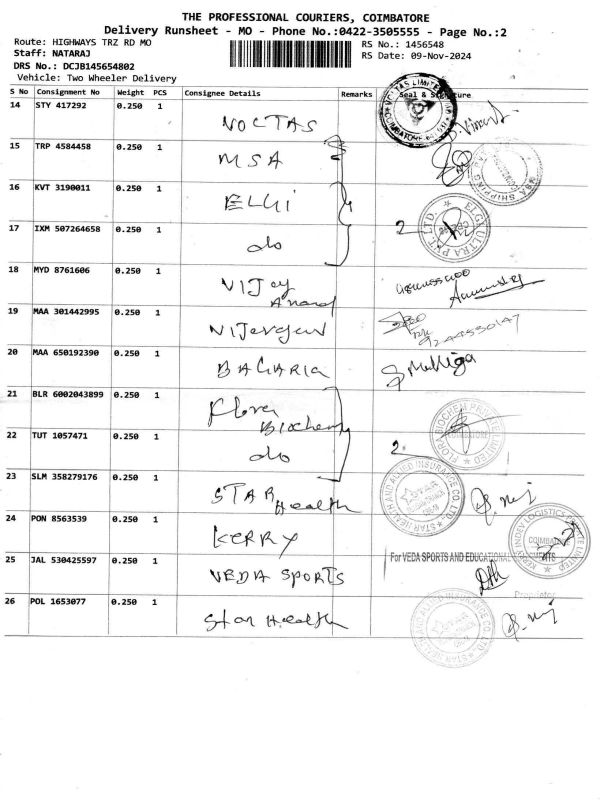 THE PROFESSIONAL COURIERS, COIMBATORE
Delivery Runsheet - MO - Phone No.:0422-3505555 - Page No.:2
Route: HIGHWAYS TRZ RD MO
RS No.: 1456548
Staff: NATARAJ
RS Date: 09-Nov-2024
DRS No.: DCJB145654802
Vehicle: Two Wheeler Delivery
S No Consignment No Weight PCS Consignee Details Remarks Seal & Signature
14 STY 417292 0.250 1 VOCTAS
15 TRP 4584458 0.250 1 MSA
16 KVT 3190011 0.250 1 ELGI
17 IXM 507264658 0.250 1 do 2
ELGI ULTRA PVT LTD.
18 MYD 8761606 0.250 1 VIJay Anand
19 MAA 301442995 0.250 1
20 MAA 650192390 0.250 1 BAGARIA
21 BLR 6002043899 0.250 1 Flora Biochem
FLORA BIOCHEM PRIVATE LIMITED
22 TUT 1057471 0.250 1 do 2
23 SLM 358279176 0.250 1 STAR Health
STAR HEALTH AND ALLIED INSURANCE CO. LTD.
24 PON 8563539 0.250 1 KERRY
KERRY INDEV LOGISTICS PRIVATE LIMITED
25 JAL 530425597 0.250 1 VEDA SPORTS
For VEDA SPORTS AND EDUCATIONAL
Proprietor
26 POL 1653077 0.250 1 Star Health
STAR HEALTH AND ALLIED INSURANCE CO. LTD.